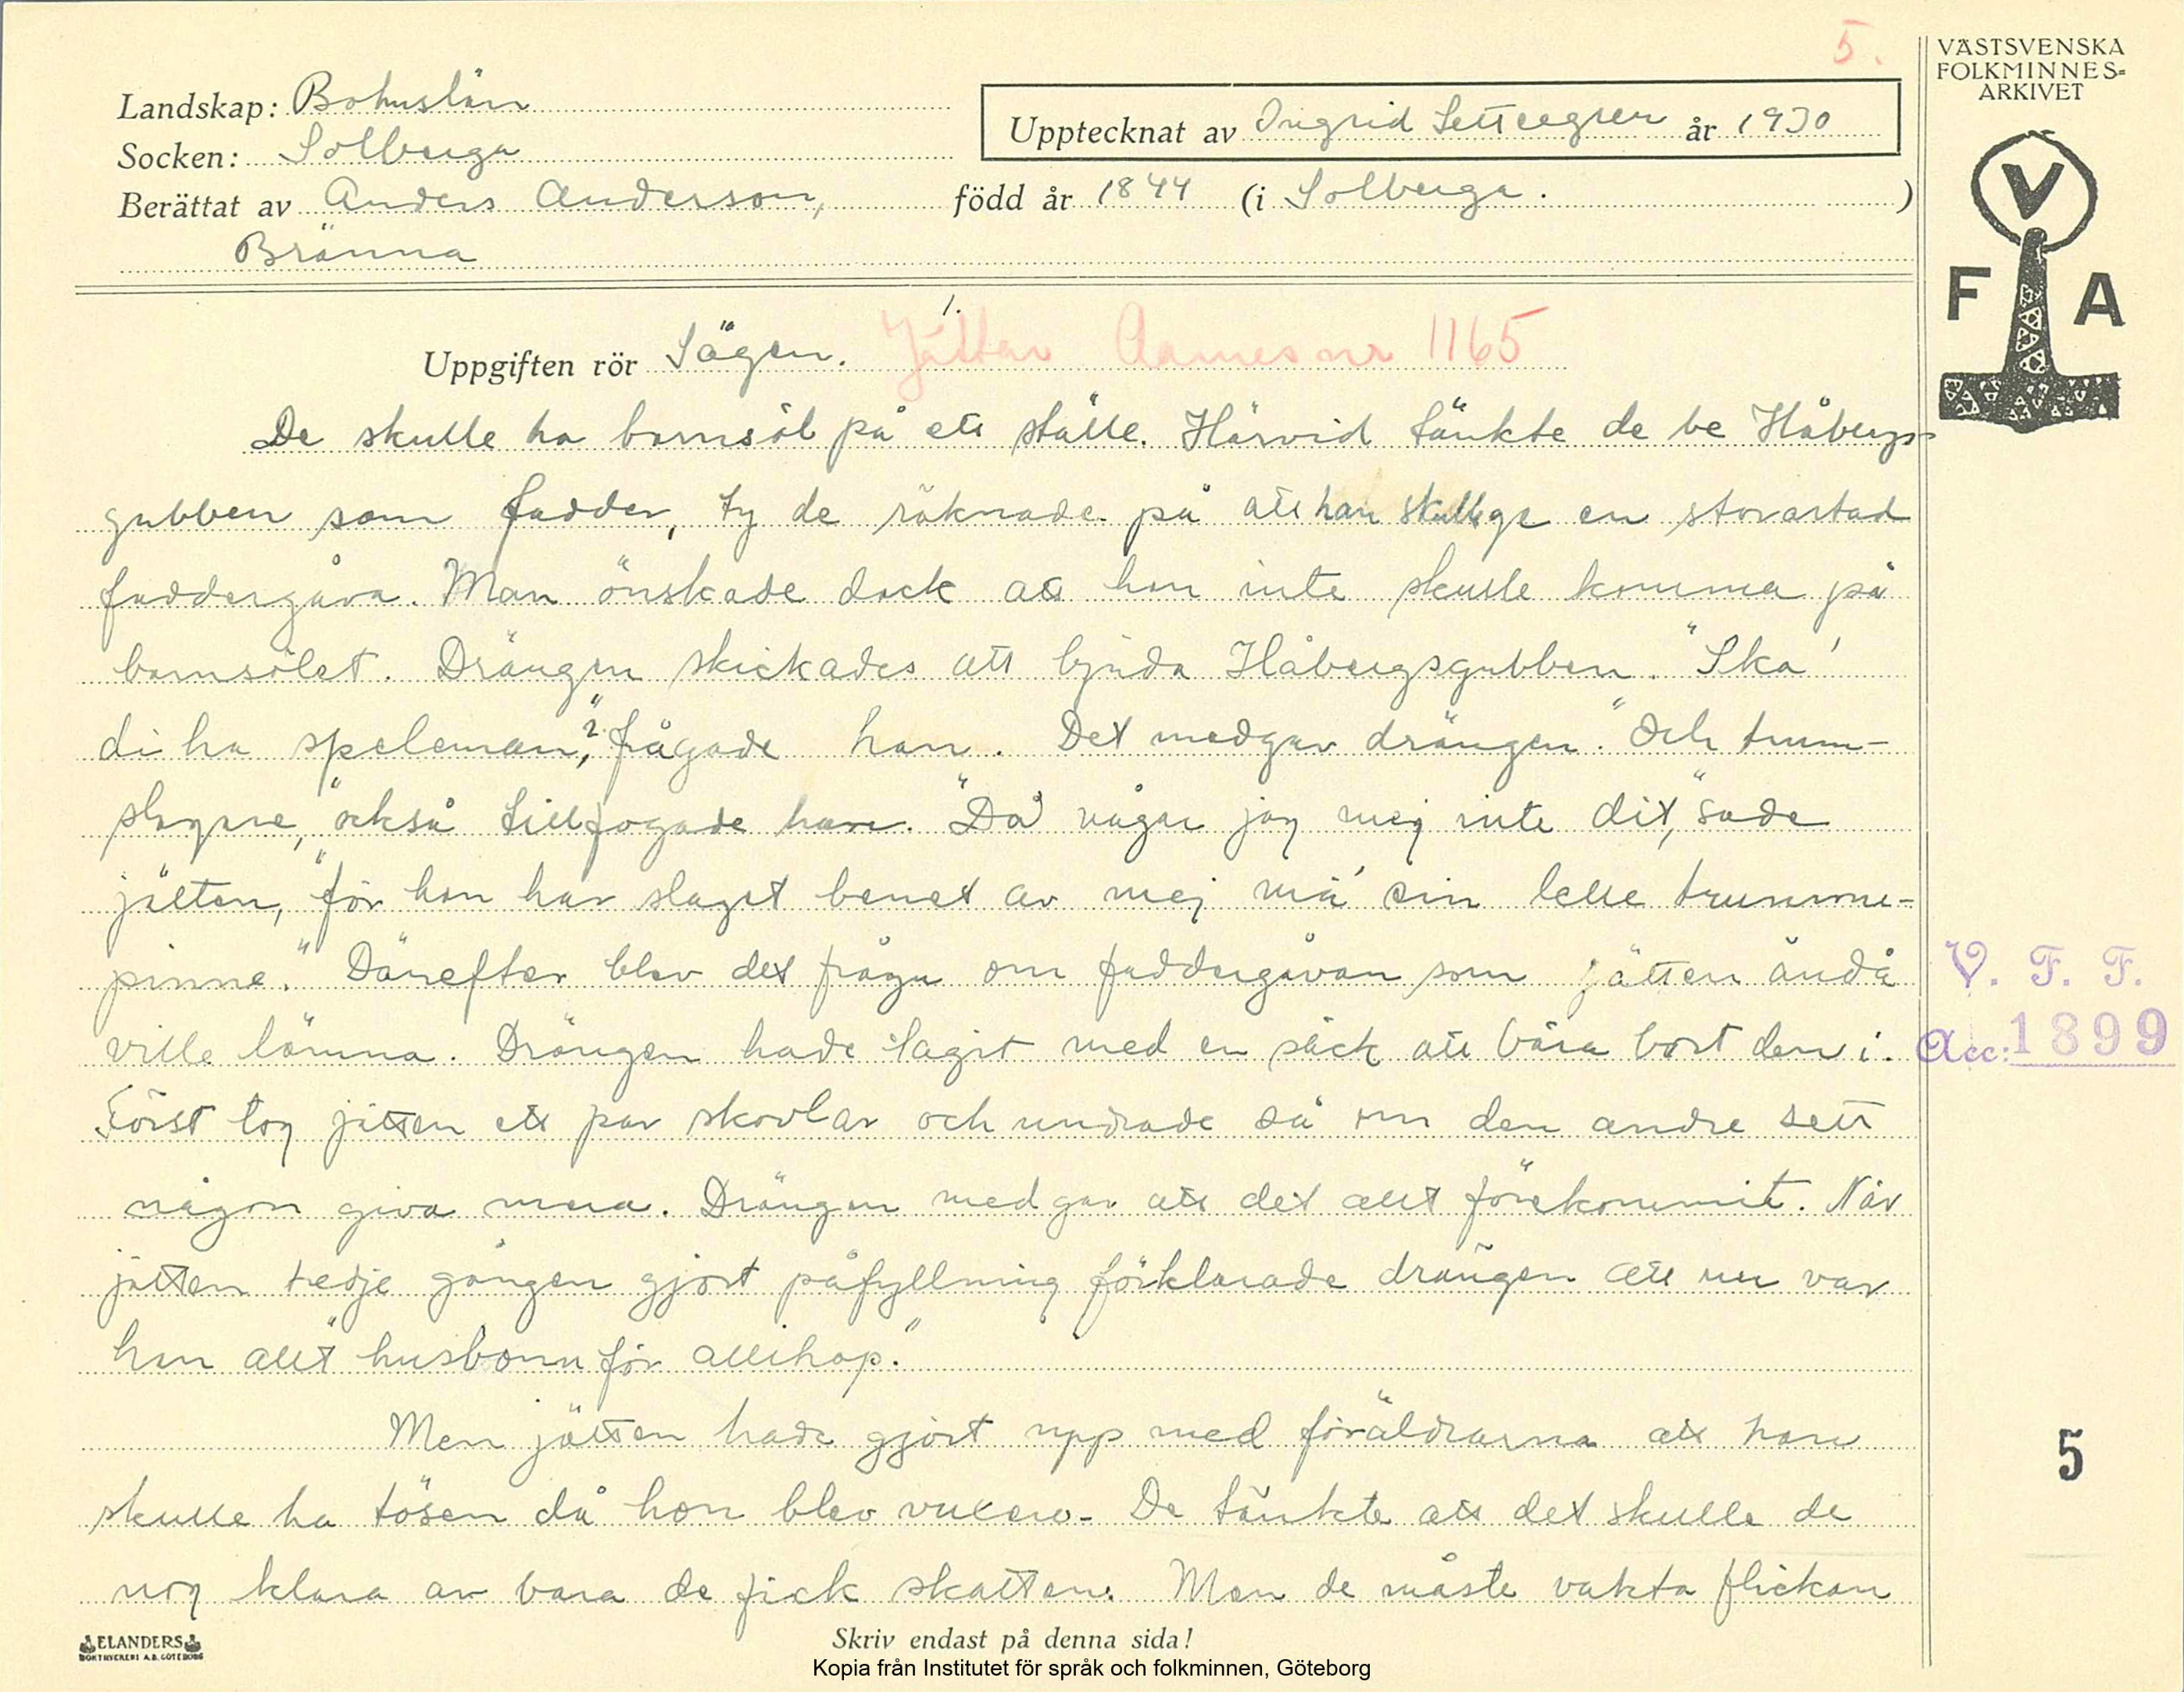 5.
VÄSTSVENSKA
FOLKMINNES=
ARKIVET
Landskap: Bohuslän
Upptecknat av Ingrid Settergren år 1930
Socken: Solberga
Berättat av Anders Anderson, född år 1844 (i Solberga. )
Bränna
V
F A
1.
Uppgiften rör Sägen. Jättar Aarnes nr 1165
De skulle ha barnsöl på ett ställe. Härvid tänkte de be Håbergs-
gubben som fadder, ty de räknade på att han skulle ge en storartad
faddergåva. Man önskade dock att han inte skulle komma på
barnsölet. Drängen skickades att bjuda Håbergsgubben. "Ska'
di ha speleman?", frågade han. Det medgav drängen. "Och trum-
slagare," också tillfogade han. "Då vågar jag mej inte dit," sade
jätten, "för han har slaget benet av mej mä' sin lelle trumme-
pinne." Därefter blev det fråga om faddergåvan som jätten ändå
ville lämna. Drängen hade tagit med en säck att bära bort den i.
V. F. F.
Acc: 1899
Först tog jätten ett par skovlar och undrade så om den andre sett
någon giva mera. Drängen medgav att det allt förekommit. När
jätten tredje gången gjort påfyllning förklarade drängen att nu var
han allt "husbonn för allihop."
Men jätten hade gjort upp med föräldrarna att han
5
skulle ha tösen då hon blev vuxen. De tänkte att det skulle de
nog klara av bara de fick skatten. Men de måste vakta flickan
ELANDERS
BOKTRYCKERI A.B. GÖTEBORG
Skriv endast på denna sida!
Kopia från Institutet för språk och folkminnen, Göteborg